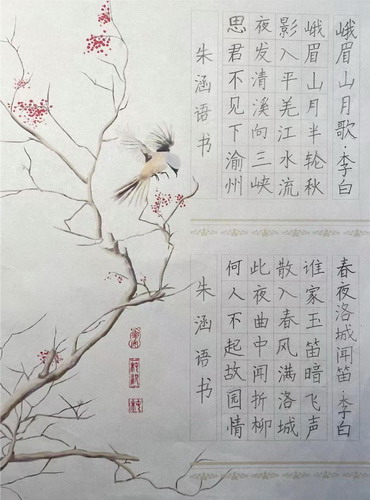 峨眉山月歌·李白
峨眉山月半轮秋
影入平羌江水流
夜发清溪向三峡
思君不见下渝州
朱涵语书
春夜洛城闻笛 李白
谁家玉笛暗飞声
散入春风满洛城
此夜曲中闻折柳
何人不起故园情
朱涵语书